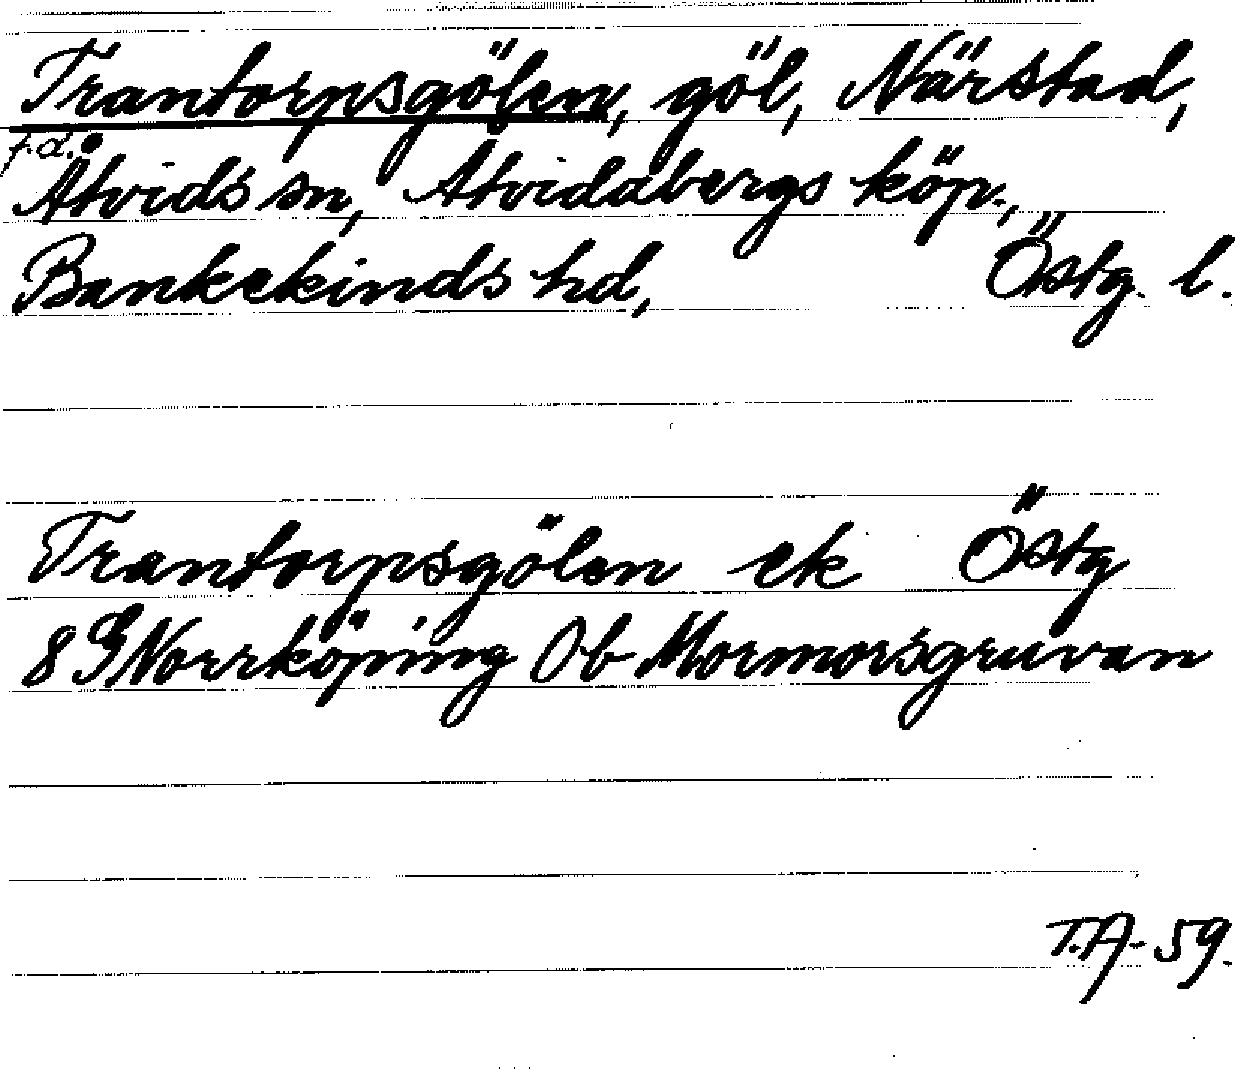 Trantorpsgölen, göl, Närstad,
f.d.
Åtvids sn, Åtvidabergs köp.,
Bankekinds hd, Östg. l.
Trantorpsgölen ek Östg
8G Norrköping 0b Mormorsgruvan
T.A-59.